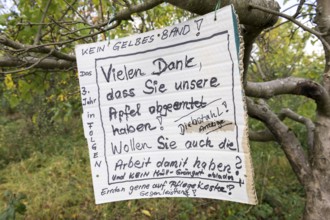 KEIN GELBES BAND!
DAS 3. Jahr in FOLGE!
Vielen Dank,
dass Sie unsere
Äpfel abgeerntet
haben! Diebstahl?
Wollen Sie auch die
Arbeit damit haben?
Und KEIN Müll + Grüngut abladen
Ernten gerne auf Pflegekosten?
Gegenleistung?